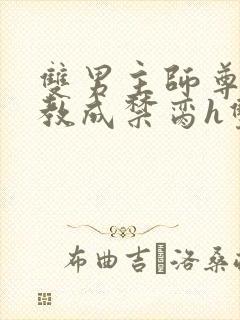 雙男主師尊
教成禁臠h雙
布曲吉洛桑